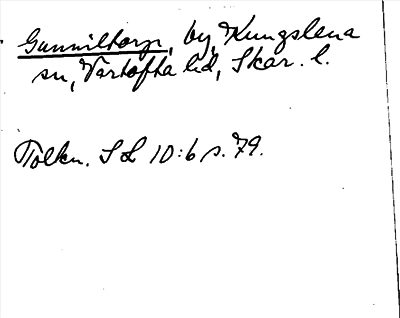 Gunniltorp, by, Kungslena
sn, Vartofta hd, Skar. l.
Tolkn. SL 10:6 s. 79.